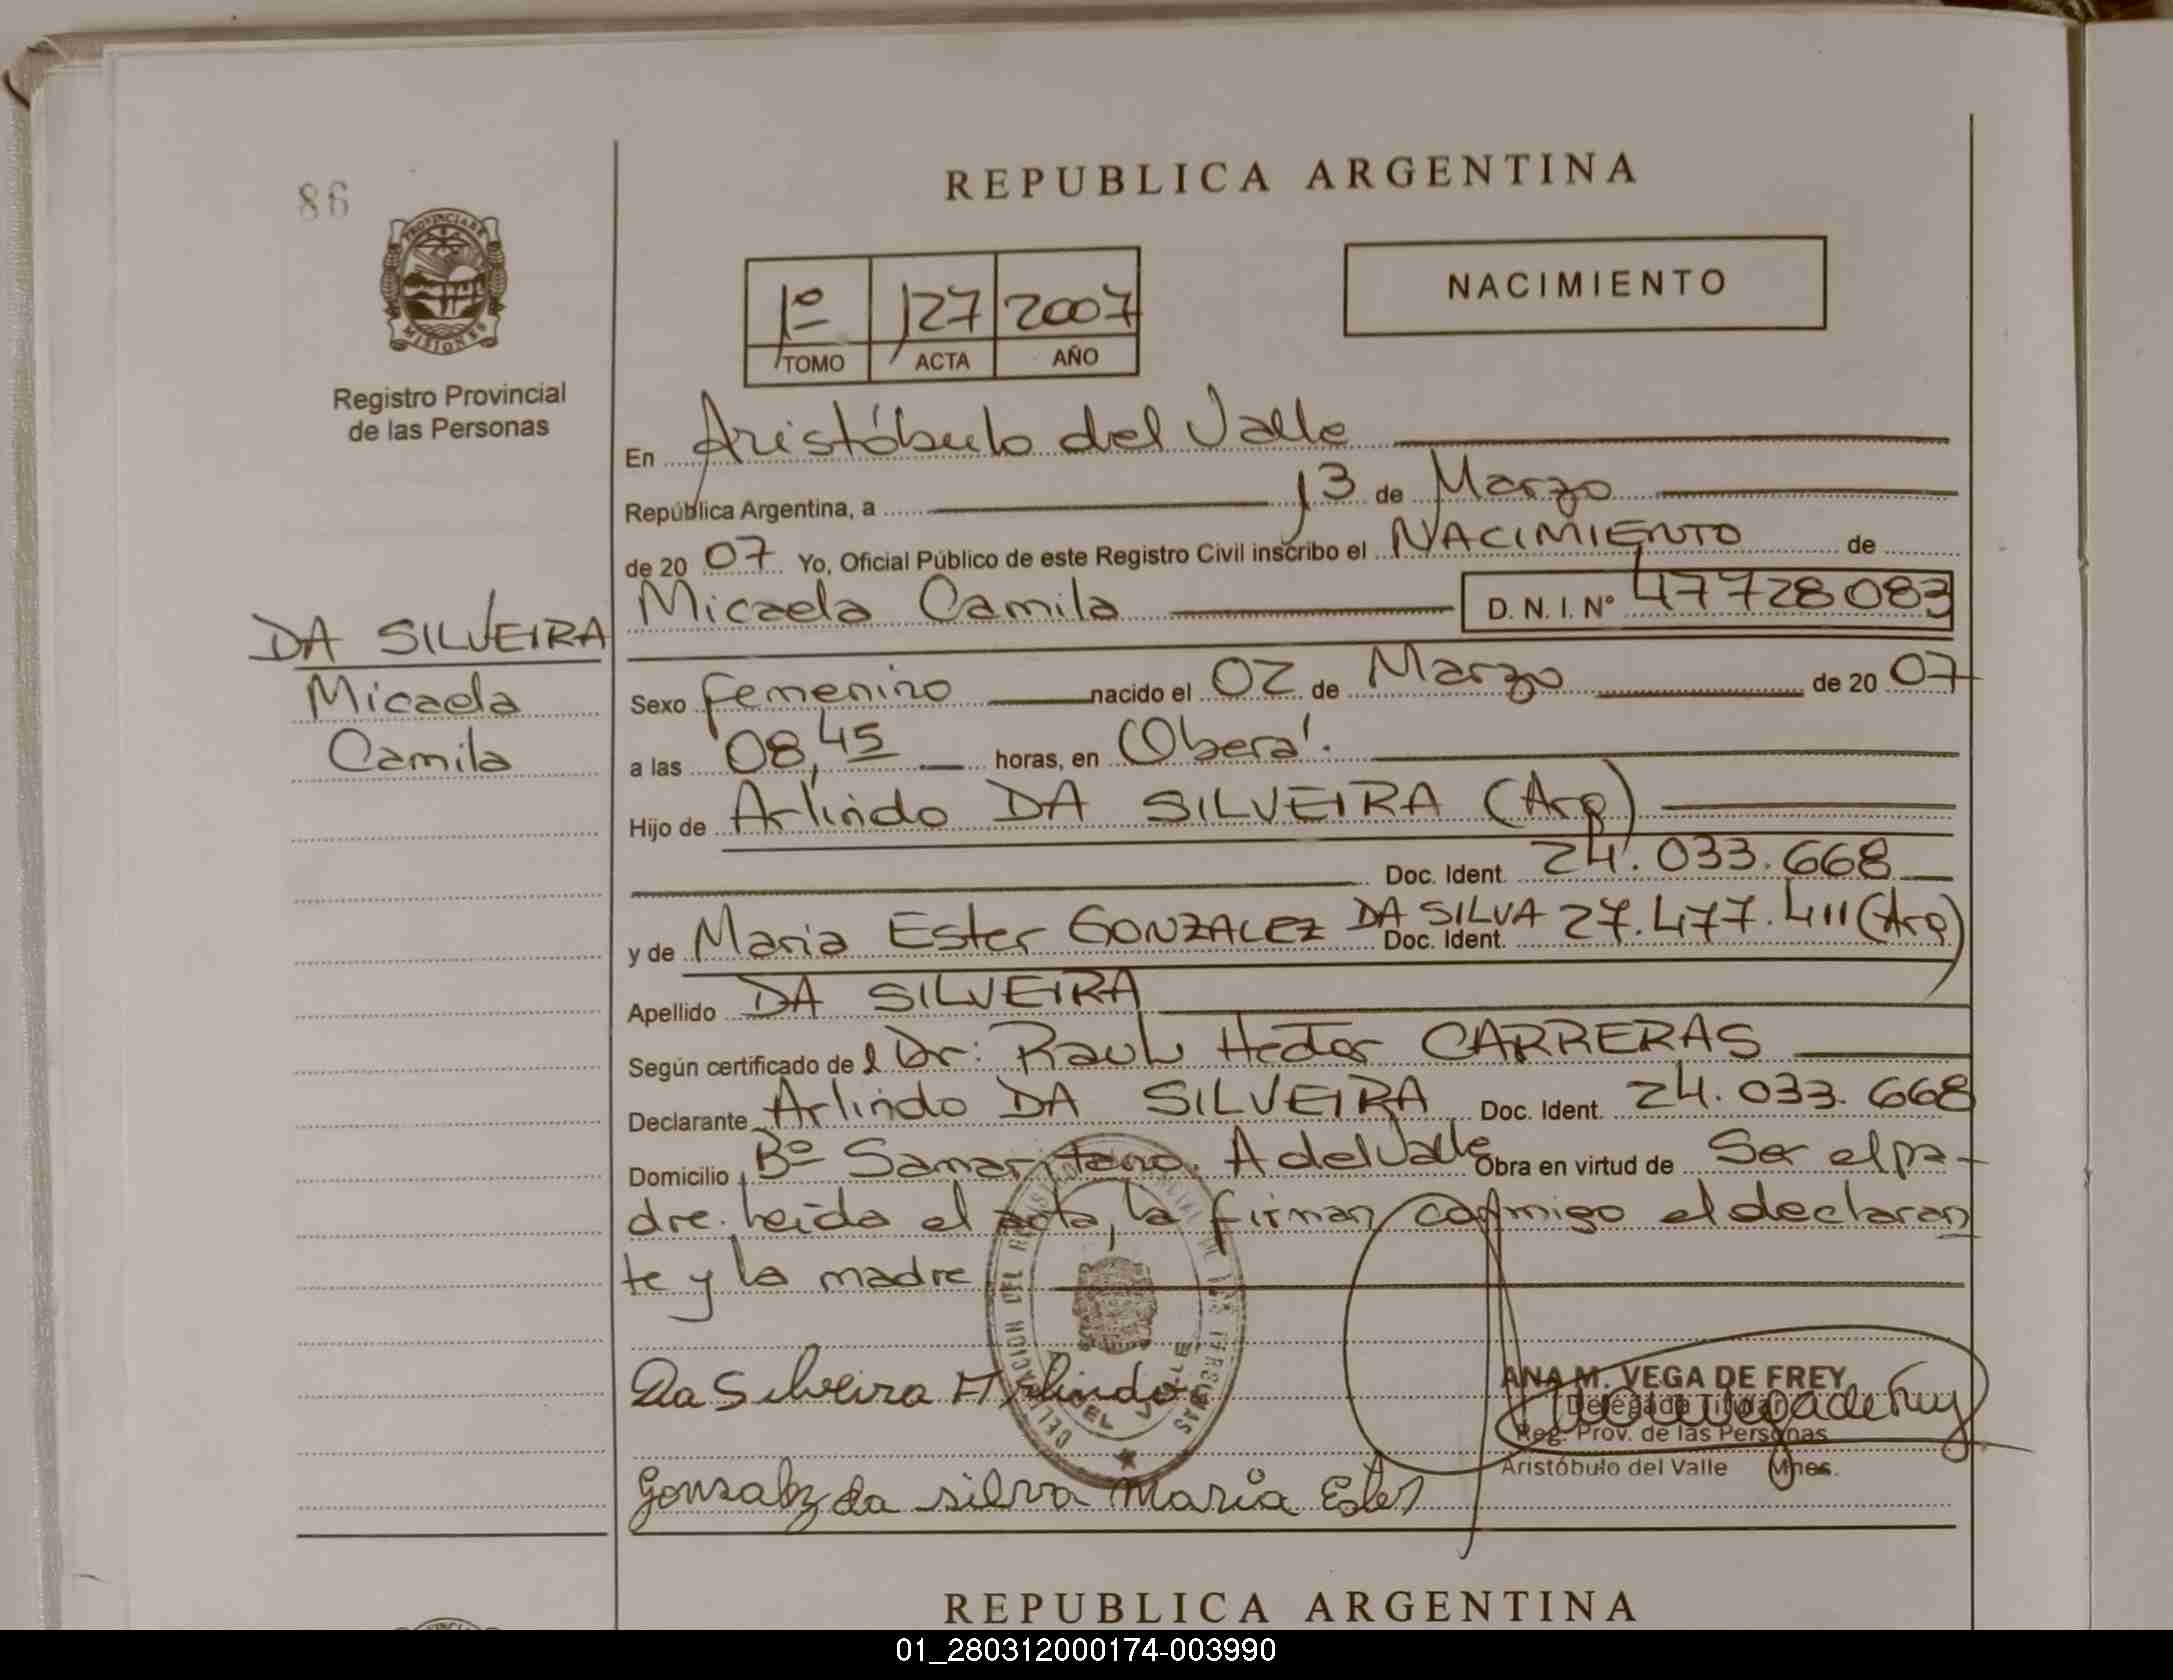 86
REPUBLICA ARGENTINA
PROVINCIA DE
MISIONES
Registro Provincial
de las Personas
1º 127 2007
TOMO ACTA AÑO
NACIMIENTO
En Aristóbulo del Valle
República Argentina, a 13 de Marzo
de 2007 Yo, Oficial Público de este Registro Civil inscribo el NACIMIENTO de
Micaela Camila D. N. I. Nº 47728083
DA SILVEIRA
Micaela
Camila
Sexo femenino nacido el 02 de Marzo de 2007
a las 08,45 horas, en Oberá.
Hijo de Arlindo DA SILVEIRA (Arg)
Doc. Ident. 24.033.668
y de Maria Ester GONZALEZ DA SILVA Doc. Ident. 27.477.411 (Arg)
Apellido DA SILVEIRA
Según certificado del Dr: Raul Hector CARRERAS
Declarante Arlindo DA SILVEIRA Doc. Ident. 24.033.668
Domicilio Bº Samaritano. A del Valle Obra en virtud de Ser el pa-
dre. Leida el acta, la firman conmigo el declaran
te y la madre
Da Silveira Arlindo
ANA M. VEGA DE FREY
Delegada Titular
Reg. Prov. de las Personas
Aristóbulo del Valle Mnes.
Gonzalez da silva Maria Ester
REPUBLICA ARGENTINA
01_280312000174-003990